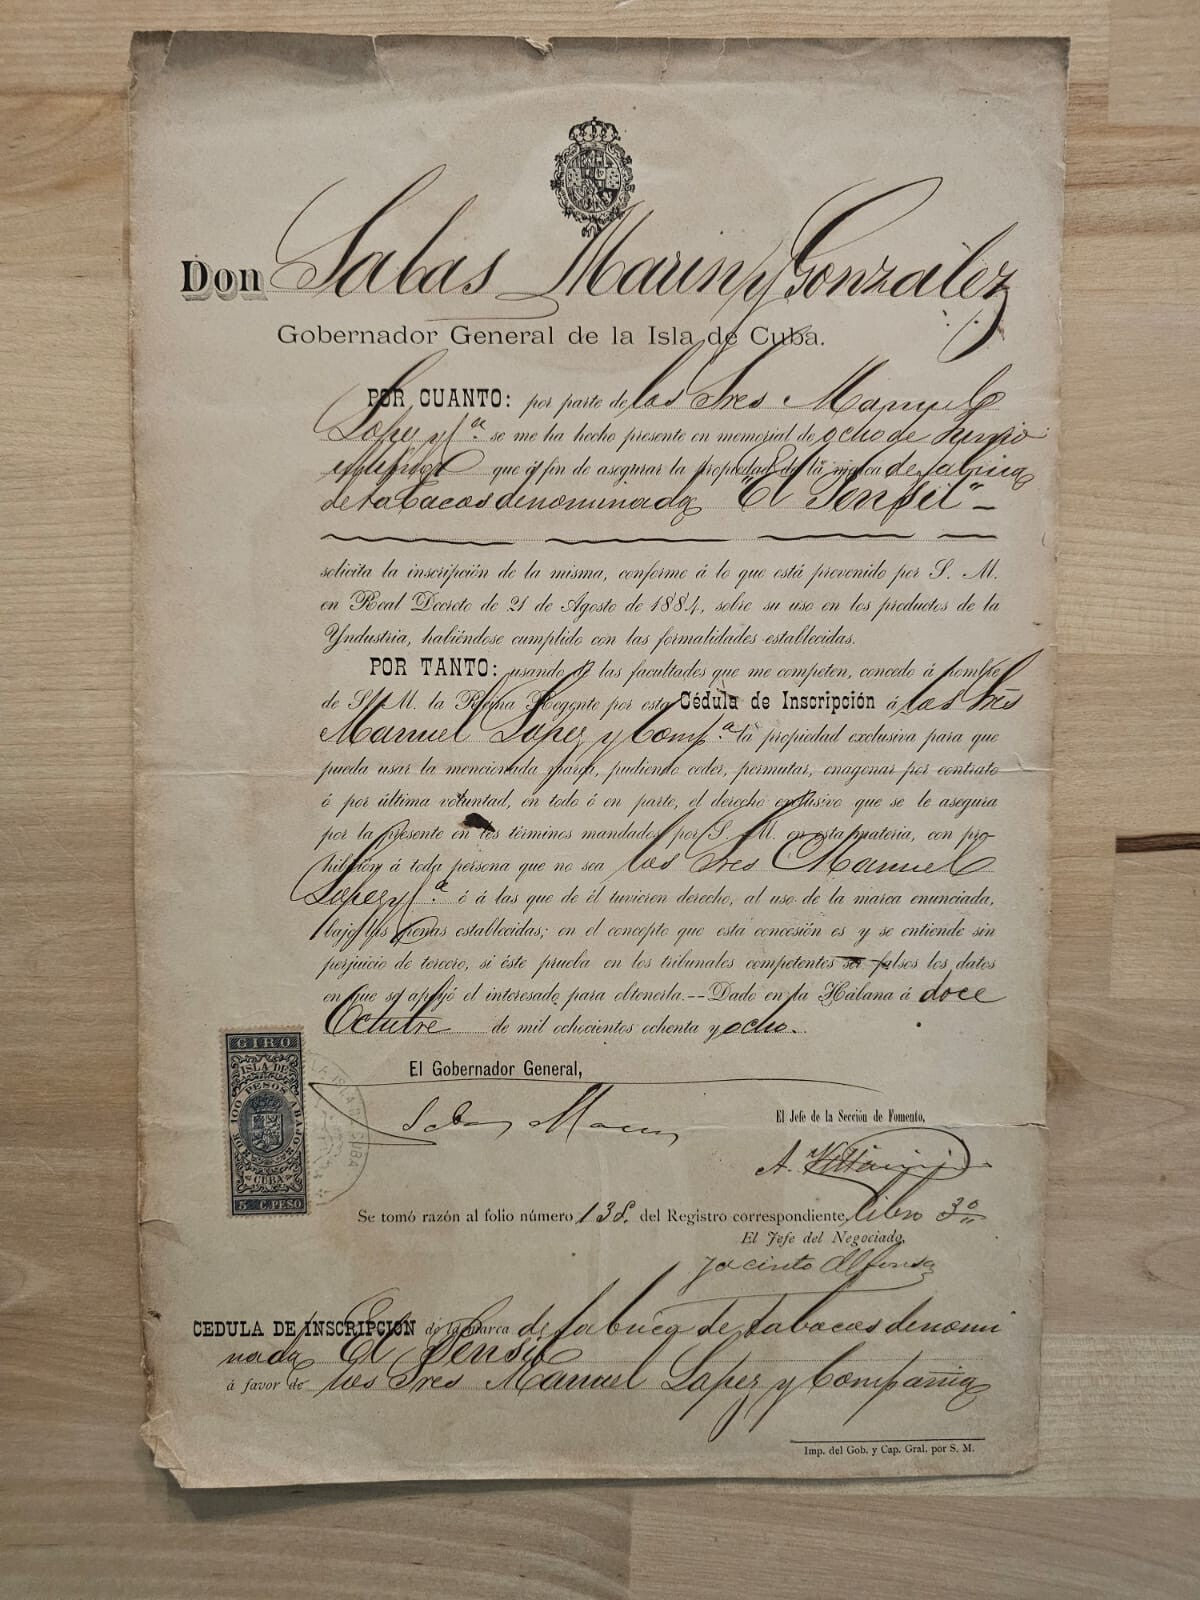 Don Sabas Marin y Gonzalez
Gobernador General de la Isla de Cuba.
POR CUANTO: por parte de los Sres Manuel
Lopez y Cª. se me ha hecho presente en memorial de ocho de Junio
que á fin de asegurar la propiedad de la marca de fabrica
de tabacos denominada "El Pensil"
solicita la inscripción de la misma, conforme á lo que está prevenido por S. M.
en Real Decreto de 21 de Agosto de 1884, sobre su uso en los productos de la
Yndustria, habiéndose cumplido con las formalidades establecidas.
POR TANTO: usando de las facultades que me competen, concedo á nombre
de S. M. la Reina Regente por esta Cédula de Inscripción á los Sres
Manuel Lopez y Compª. la propiedad exclusiva para que
pueda usar la mencionada marca, pudiendo ceder, permutar, enagenar por contrato
ó por última voluntad, en todo ó en parte, el derecho exclusivo que se le asegura
por la presente en los términos mandados por S. M. en esta materia, con pro-
hibición á toda persona que no sea los Sres Manuel
Lopez y Cª. ó á las que de él tuvieren derecho, al uso de la marca enunciada,
bajo las penas establecidas; en el concepto que esta concesión es y se entiende sin
perjuicio de tercero, si éste prueba en los tribunales competentes ser falsos los datos
en que se apoyó el interesado para obtenerla.--Dado en la Habana á doce
Octubre de mil ochocientos ochenta y ocho.
El Gobernador General,
Sabas Marin
El Jefe de la Sección de Fomento,
GIRO
ISLA DE
POR 100 PESOS ABAJO
CUBA
5 C. PESO
Se tomó razón al folio número 138. del Registro correspondiente, libro 3º
El Jefe del Negociado,
Jacinto Alfonso
CEDULA DE INSCRIPCIÓN de la marca de fabrica de tabacos denomi
nada El Pensil
á favor de los Sres Manuel Lopez y Compañia
Imp. del Gob. y Cap. Gral. por S. M.